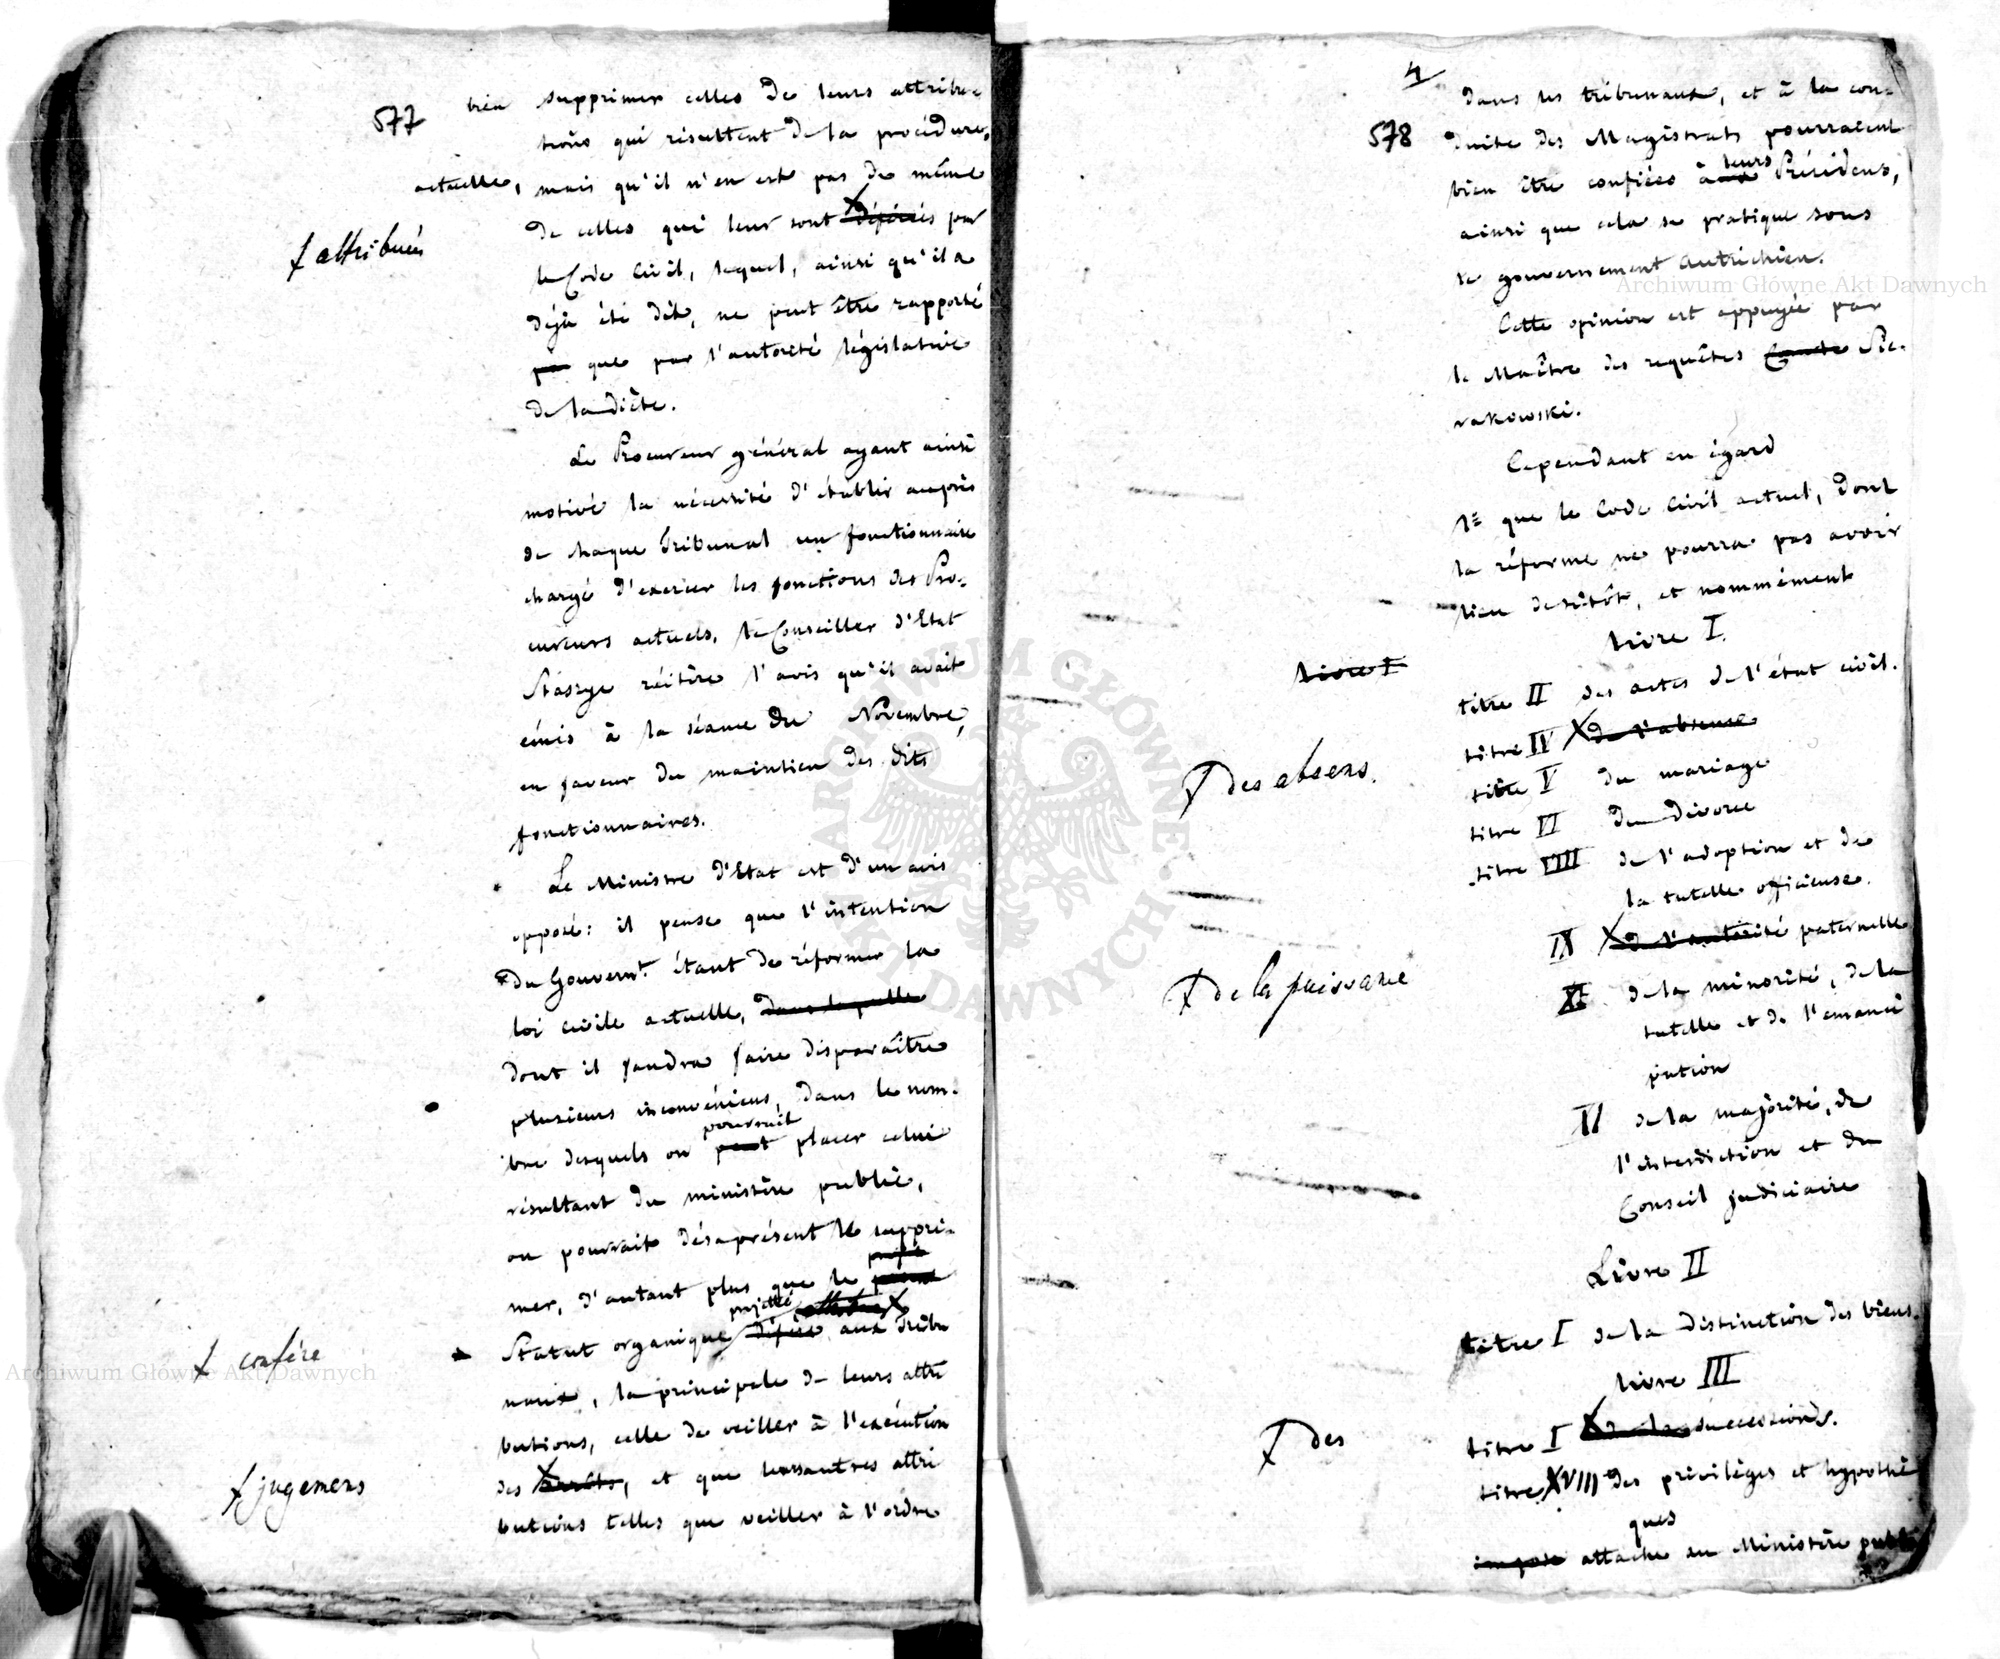 577
bien supprimer celles de leurs attribu-
tions qui résultent de la procédure
actuelle, mais qu'il n'en est pas de même
de celles qui leur sont déférées par
⨍ attribuées
le Code Civil, lequel, ainsi qu'il a
déjà été dit, ne peut être rapporté
par que par l'autorité législative
de la diète.
Le Procureur général ayant ainsi
motivé la nécessité d'établir auprès
de chaque Tribunal un fonctionnaire
chargé d'exercer les fonctions des Pro-
cureurs actuels, le Conseiller d'Etat
Staszyc réitère l'avis qu'il avait
émis à la séance du Novembre,
en faveur du maintien des dits
fonctionnaires.
Le Ministre d'Etat est d'un avis
opposé: il pense que l'intention
du Gouvernt. étant de réformer la
loi civile actuelle, dans laquelle
dont il faudra faire disparaître
plusieurs inconvéniens, dans le nom-
bre desquels on peut pourrait placer celui
résultant du ministère public,
on pourrait désaprésent le suppri-
mer, d'autant plus que le projet
Statut organique projetté défère attribue X aux Tribu
⨍ confére
naux, la principale de leurs attri
butions, celle de veiller à l'exécution
des X, et que leurs autres attri
⨍ jugemens
butions telles que veiller à l'ordre
4
578
dans les tribunaux, et à la con-
duite des Magistrats pourraient
bien être confiées à leurs Présidens,
ainsi que cela se pratique sous
le gouvernement Autrichien.
Cette opinion est appuyée par
le Maître des requêtes Comte Sie-
rakowski.
Cependant eu égard
1º que le Code Civil actuel, dont
la réforme ne pourra pas avoir
lieu de sitôt, et nommément
livre I.
livre I
titre II des actes de l'état civil.
titre IV X de l'absence
⨍ des absens.
titre V du mariage
titre VI du divorce
titre VIII de l'adoption et de
la tutelle officieuse.
IX X de l'autorité paternelle
⨍ de la puissance
X de la minorité, de la
tutelle et de l'émanci
pation
XI de la majorité, de
l'interdiction et du
Conseil judiciaire
Livre II
titre I de la distinction des biens.
livre III
titre I X de la successions.
⨍ des
titre XVIII des privilèges et hypothè
ques
impose attache au Ministère publi
Archiwum Główne Akt Dawnych
Archiwum Główne Akt Dawnych
ARCHIWUM GŁÓWNE AKT DAWNYCH